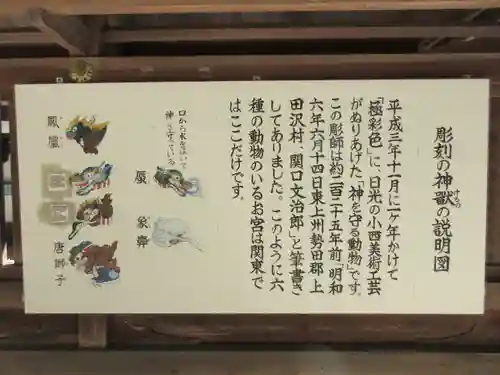 彫刻の神獣の説明図
けもの
平成三年十一月に一ヶ年かけて
「極彩色」に、日光の小西美術工芸
がぬりあげた「神を守る動物」です。
この彫師は約二百二十五年前「明和
六年六月十四日東上州勢田郡上
田沢村、関口文治郎」と筆書き
してありました。このように六
種の動物のいるお宮は関東で
はここだけです。
口から水をはいて
神を守っている
蜃
象
鳳凰
唐獅子